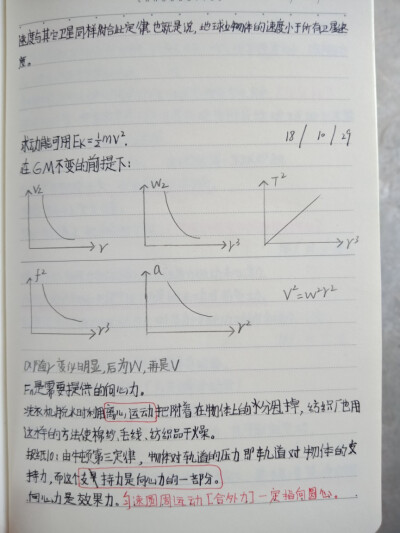 速度与其它卫星同样符合此定律.也就是说,地球上物体的速度小于所有卫星速
度。
求动能可用Ek=½mV².
18 / 10 / 29
在GM不变的前提下:
V² W² T²
r r³ r³
f² a
r³ r² V²=W²r²
a随r变化明显,后为W,再是V
Fn是需要提供的向心力。
洗衣机脱水时利用离心运动把附着在物体上的水分甩掉,纺织厂也用
这样的方法使棉纱、毛线、纺织品干燥。
由牛顿第三定律,物体对轨道的压力即轨道对物体的支
持力,而这个支持力是向心力的一部分。
向心力是效果力。匀速圆周运动[合外力]一定指向圆心。